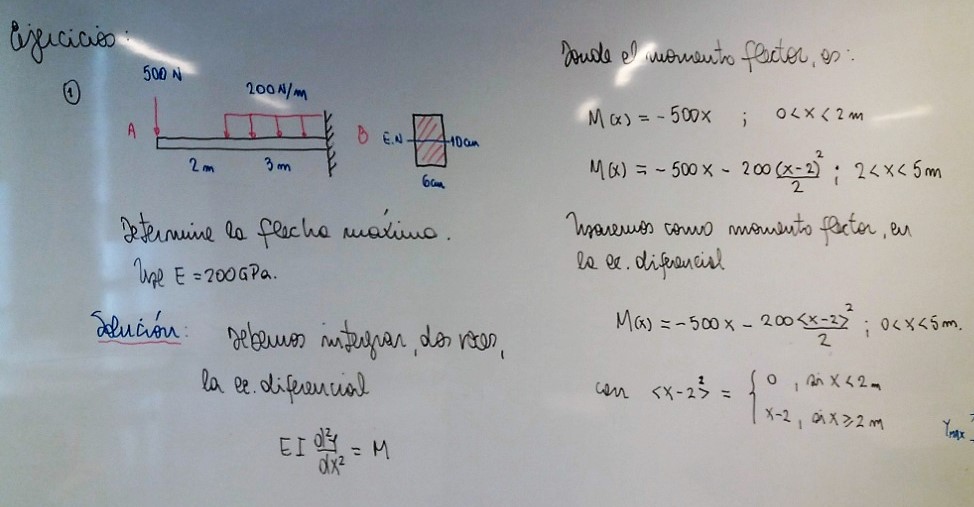 Ejercicios:
①
500 N
200 N/m
A
B
2 m
3 m
E.N
10cm
6cm
Determine la flecha máxima.
Use E = 200 GPa.
Solución: Debemos integrar, dos veces,
la ec. diferencial
EI d²y/dx² = M
Donde el momento flector, es:
M(x) = -500x ; 0<x<2m
M(x) = -500x - 200(x-2)²/2 ; 2<x<5m
Usaremos como momento flector, en
la ec. diferencial
M(x) = -500x - 200<x-2>²/2 ; 0<x<5m.
con <x-2>² = { 0 , si x<2m
x-2 , si x≥2m
Ymax